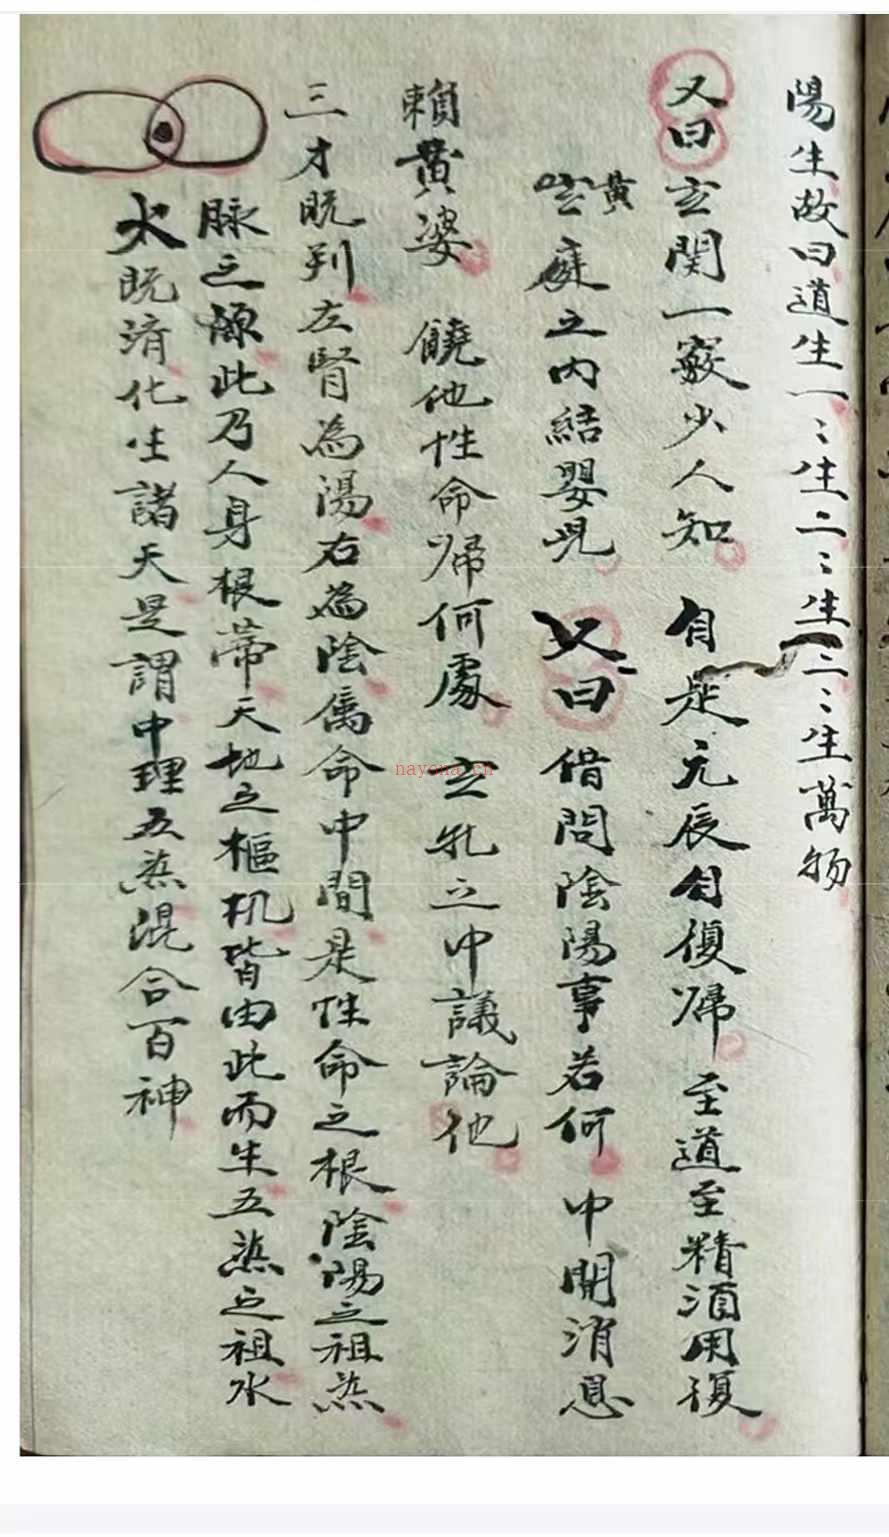 陽生故曰道生一〻生二〻生三〻生萬物
又曰玄関一竅少人知 自是元辰自復歸 至道至精須用復
黄庭之内結嬰児 又曰借問陰陽事若何 中間消息
賴黄婆 饒他性命歸何處 玄牝之中議論他
三才既判左腎為陽右為陰属命中間是性命之根陰陽之祖炁
脉之源此乃人身根蒂天地之樞机皆由此而生五炁之祖水
火既済化生諸天是謂中理五炁混合百神
nayona.cn